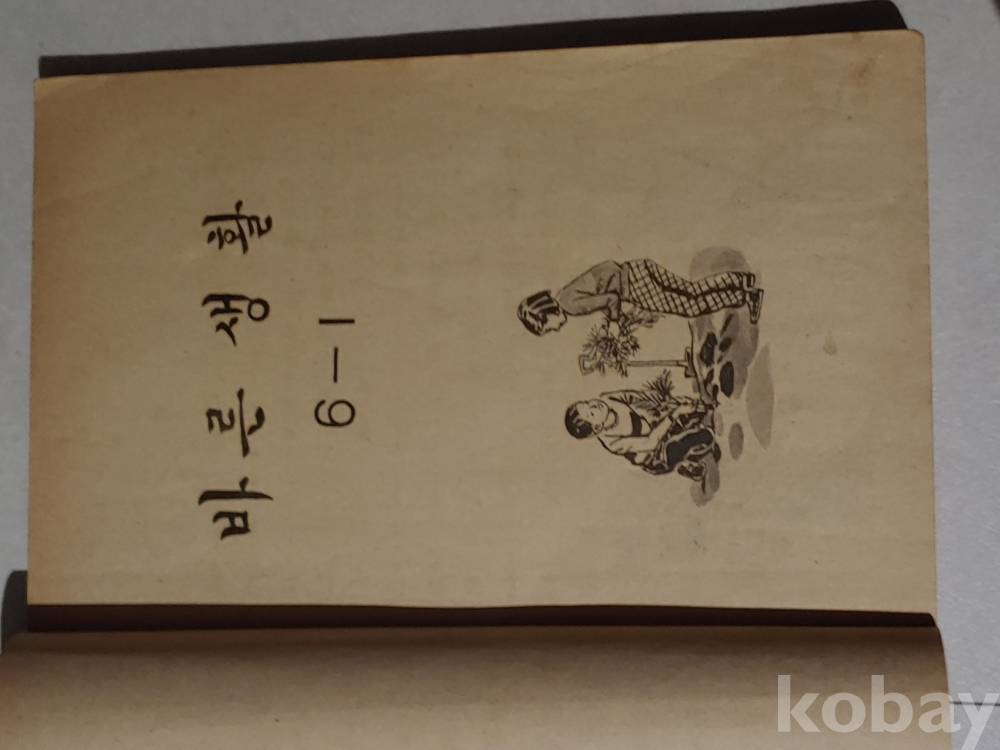 바른생활
6-1
kobay